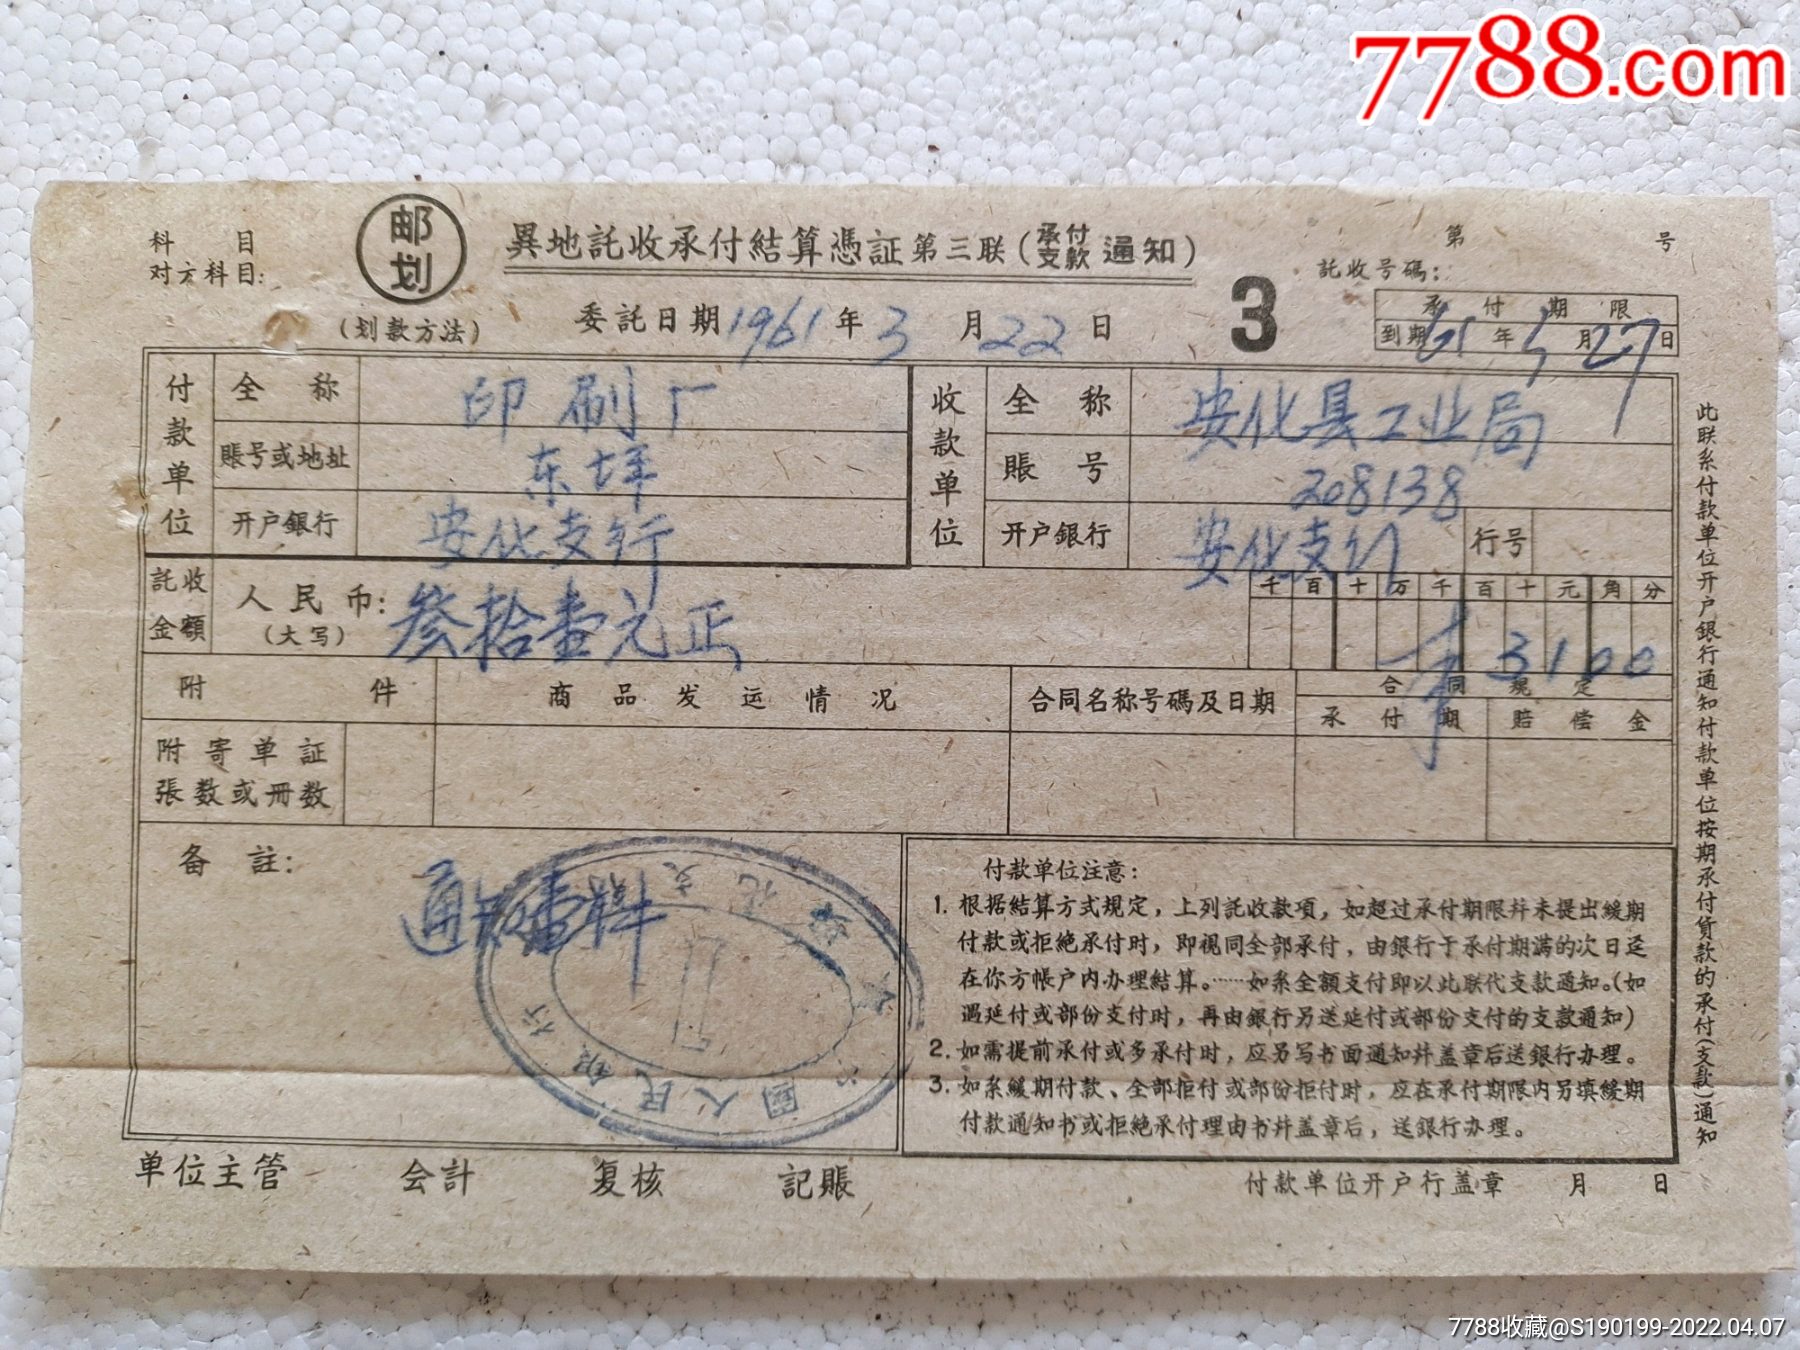 7788.com
科 目
对方科目:
邮划
(划款方法)
異地託收承付結算憑証第三联(承付支款通知)
委託日期1961年3月22日
3
第 号
託收号碼:
承付期限
到期61年 月27日
付款单位
全 称 印刷厂
賬号或地址 东坪
开户銀行 安化支行
收款单位
全 称 安化县工业局
賬 号 208138
开户銀行 安化支行 行号
託收金額
人民币:(大写) 叁拾壹元正
千百十万千百十元角分
3100
附 件
商品发运情况
合同名称号碼及日期
合同規定
承付期 賠偿金
附寄单証
張数或冊数
备 註:
通知壹
國人民銀行
付款单位注意:
1. 根据結算方式規定，上列託收款項，如超过承付期限幷未提出緩期
付款或拒絶承付时，即視同全部承付，由銀行于承付期满的次日迳
在你方帳户内办理結算。……如系全額支付即以此联代支款通知。(如
遇延付或部份支付时，再由銀行另送延付或部份支付的支款通知)
2. 如需提前承付或多承付时，应另写书面通知幷盖章后送銀行办理。
3. 如系緩期付款、全部拒付或部份拒付时，应在承付期限内另填緩期
付款通知书或拒絶承付理由书幷盖章后，送銀行办理。
此联系付款单位开户銀行通知付款单位按期承付貨款的承付(支款)通知
单位主管 会計 复核 記賬
付款单位开户行盖章 月 日
7788收藏@S190199-2022.04.07